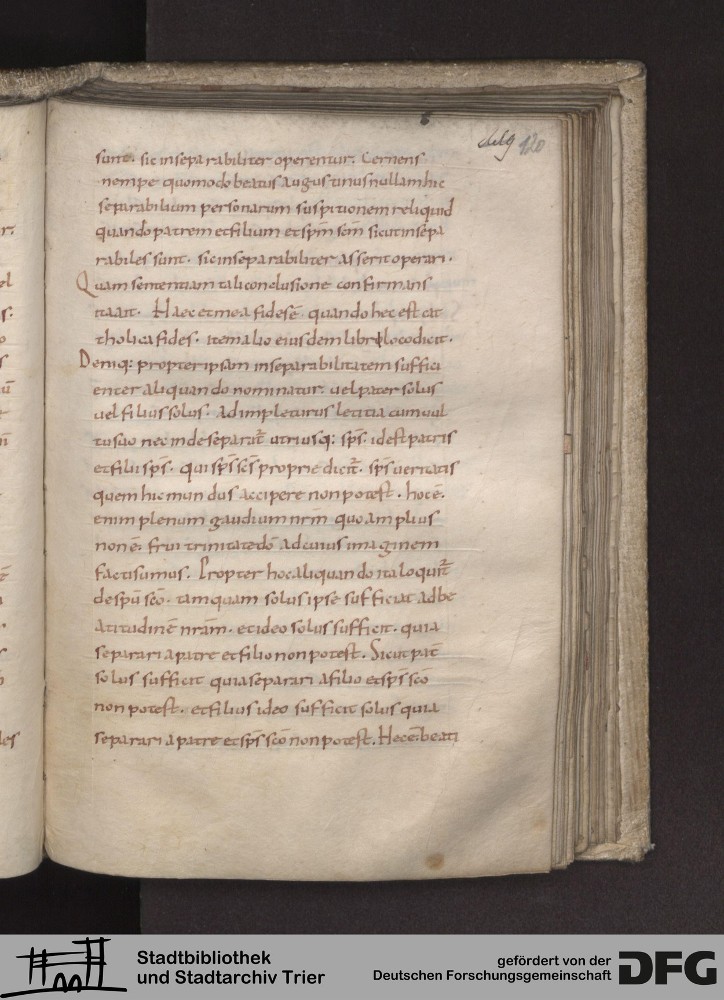 120
sunt. sic inseparabiliter operentur. Cernens
nempe quomodo beatus augustinus nullam hic
separabilium personarum suspitionem reliquid
quando patrem et filium et spm̄ scm̄ sicut insepa
rabiles sunt. sic inseparabiliter asserit operari.
Quam sententiam tali conclusione confirmans
ita ait. Haec et mea fides ē quando hec est cat
tholica fides. item alio eiusdem libri loco dicit.
Deniq: propter ipsam inseparabilitatem suffici
enter aliquando nominatur. uel pater solus
uel filius solus. adimpleturus letitia cum uul
tu suo nec inde separat̄ utriusq: sps̄. id est patris
et filii sps̄. qui sps̄ scs̄ proprie dicit̄. sps̄ ueritatis
quem hic mundus accipere non potest. hoc ē.
enim plenum gaudium nrm̄ quo amplius
non ē. frui trinitate dō ad cuius imaginem
facti sumus. Propter hoc aliquando ita loquit̄
de spū scō. tamquam solus ipse sufficiat ad be
atitudinē nrām. et ideo solus sufficit. quia
separari a patre et filio non potest. Sicut pat̄
solus sufficit quia separari a filio et sps̄ scō
non potest. et filius ideo sufficit solus quia
separari a patre et sps̄ scō non potest. Hec ē. beati
Stadtbibliothek
und Stadtarchiv Trier
gefördert von der
Deutschen Forschungsgemeinschaft
DFG